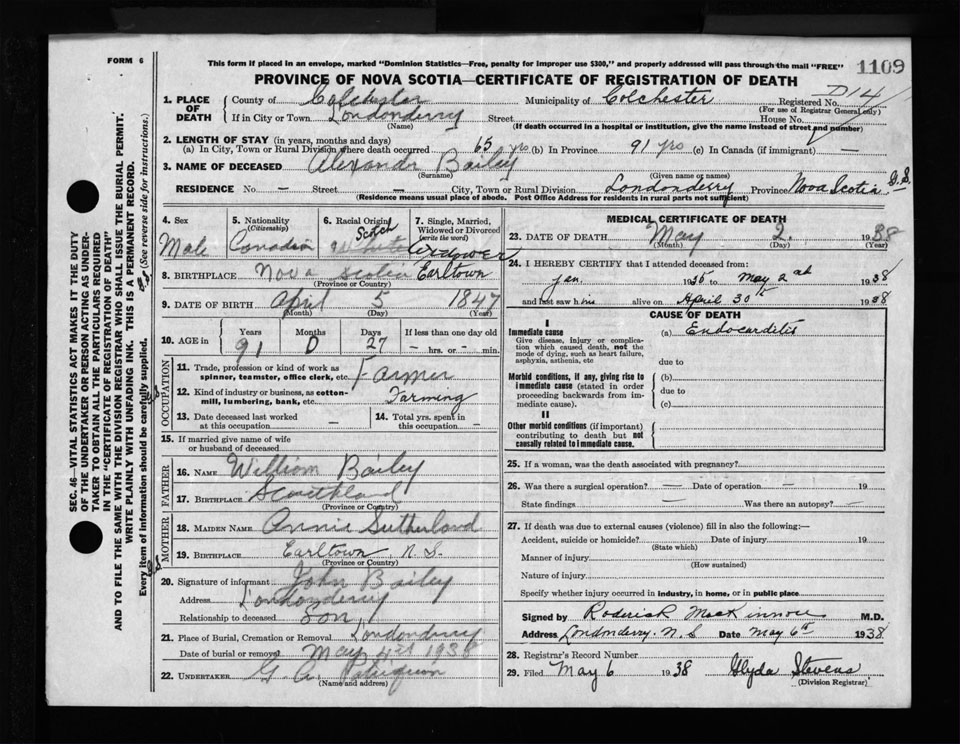 FORM 6
This form if placed in an envelope, marked "Dominion Statistics—Free, penalty for improper use $300," and properly addressed will pass through the mail "FREE"
1109
PROVINCE OF NOVA SCOTIA—CERTIFICATE OF REGISTRATION OF DEATH
D14
1. PLACE OF DEATH County of Colchester Municipality of Colchester Registered No.
(For use of Registrar General only)
If in City or Town Londonderry Street House No.
(Name) (If death occurred in a hospital or institution, give the name instead of street and number)
2. LENGTH OF STAY (in years, months and days)
(a) In City, Town or Rural Division where death occurred 65 yrs (b) In Province 91 yrs (c) In Canada (if immigrant) —
3. NAME OF DECEASED Alexander Bailey
(Surname) (Given name or names)
RESIDENCE No — Street — City, Town or Rural Division Londonderry Province Nova Scotia
(Residence means usual place of abode. Post Office Address for residents in rural parts not sufficient)
4. Sex 5. Nationality 6. Racial Origin 7. Single, Married, Widowed or Divorced
(Citizenship) (write the word)
Scotch
Male Canadian White Widower
8. BIRTHPLACE Nova Scotia Earltown
(Province or Country)
9. DATE OF BIRTH April 5 1847
(Month) (Day) (Year)
10. AGE in Years Months Days If less than one day old
91 0 27 — hrs. or — min.
OCCUPATION
11. Trade, profession or kind of work as spinner, teamster, office clerk, etc. Farmer
12. Kind of industry or business, as cotton-mill, lumbering, bank, etc. Farming
13. Date deceased last worked at this occupation —
14. Total yrs. spent in this occupation —
15. If married give name of wife or husband of deceased
FATHER
16. NAME William Bailey
17. BIRTHPLACE Scouthland
(Province or Country)
MOTHER
18. MAIDEN NAME Annie Sutherland
19. BIRTHPLACE Earltown, N.S.
(Province or Country)
20. Signature of informant John Bailey
Address Londonderry
Relationship to deceased Son
21. Place of Burial, Cremation or Removal Londonderry
Date of burial or removal May 4th 1938
22. UNDERTAKER G. A.
(Name and address)
MEDICAL CERTIFICATE OF DEATH
23. DATE OF DEATH May 2, 1938
(Month) (Day) (Year)
24. I HEREBY CERTIFY that I attended deceased from:
Jan. 1935 to May 2nd 1938
and last saw him alive on April 30th 1938
CAUSE OF DEATH
I
Immediate cause (a) Endocarditis
Give disease, injury or complication which caused death, not the mode of dying, such as heart failure, asphyxia, asthenia, etc
due to
Morbid conditions, if any, giving rise to immediate cause (stated in order proceeding backwards from immediate cause).
(b)
due to
(c)
II
Other morbid conditions (if important) contributing to death but not causally related to immediate cause.
25. If a woman, was the death associated with pregnancy?
26. Was there a surgical operation? — Date of operation — 19
State findings — Was there an autopsy? —
27. If death was due to external causes (violence) fill in also the following:—
Accident, suicide or homicide? Date of injury 19
(State which)
Manner of injury
(How sustained)
Nature of injury
Specify whether injury occurred in industry, in home, or in public place
Signed by Roderick MacKinnon M.D.
Address Londonderry. N.S Date May 6th 1938
28. Registrar's Record Number
29. Filed May 6 1938 Glyda Stevens
(Division Registrar)
SEC. 46—VITAL STATISTICS ACT MAKES IT THE DUTY
OF THE UNDERTAKER OR PERSON ACTING AS UNDER-
TAKER TO OBTAIN ALL THE PARTICULARS REQUIRED
IN THE "CERTIFICATE OF REGISTRATION OF DEATH"
AND TO FILE THE SAME WITH THE DIVISION REGISTRAR WHO SHALL ISSUE THE BURIAL PERMIT.
WRITE PLAINLY WITH UNFADING INK. THIS IS A PERMANENT RECORD.
Every item of information should be carefully supplied. (See reverse side for instructions.)